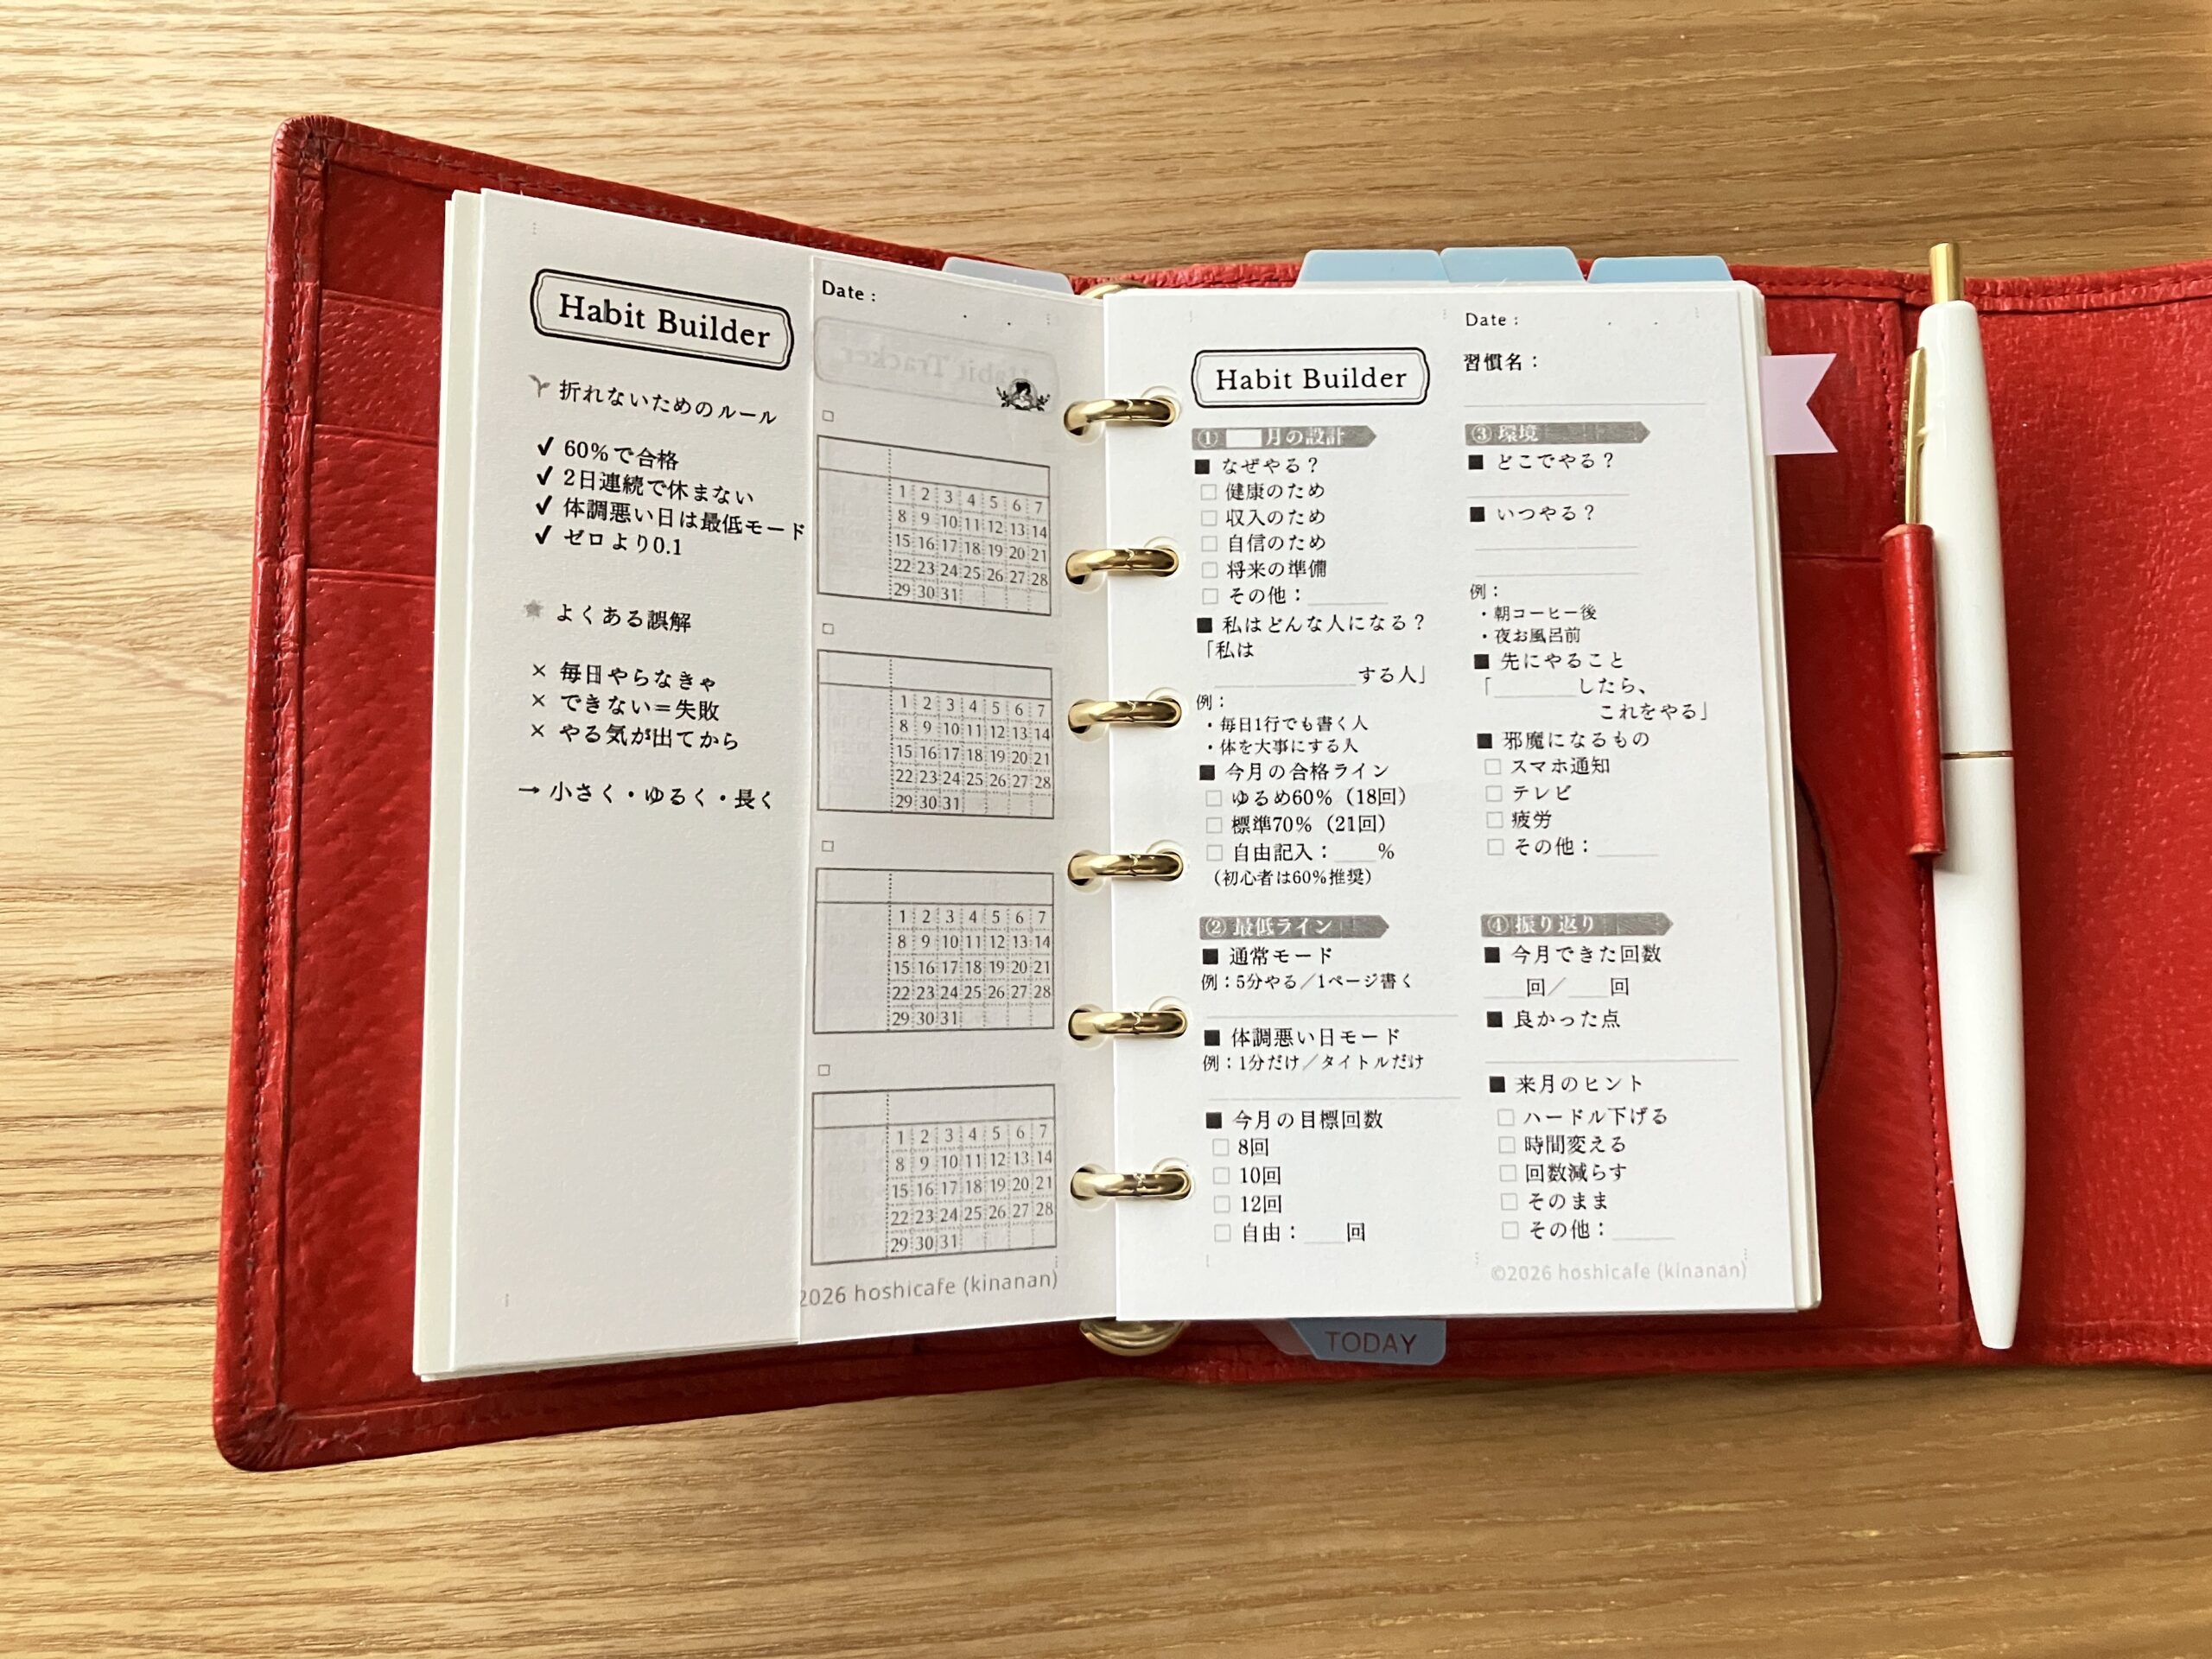 Habit Builder
折れないためのルール
✓ 60%で合格
✓ 2日連続で休まない
✓ 体調悪い日は最低モード
✓ ゼロより0.1
よくある誤解
× 毎日やらなきゃ
× できない＝失敗
× やる気が出てから
→ 小さく・ゆるく・長く
Date :
Habit Tracker
1 2 3 4 5 6 7
8 9 10 11 12 13 14
15 16 17 18 19 20 21
22 23 24 25 26 27 28
29 30 31
1 2 3 4 5 6 7
8 9 10 11 12 13 14
15 16 17 18 19 20 21
22 23 24 25 26 27 28
29 30 31
1 2 3 4 5 6 7
8 9 10 11 12 13 14
15 16 17 18 19 20 21
22 23 24 25 26 27 28
29 30 31
1 2 3 4 5 6 7
8 9 10 11 12 13 14
15 16 17 18 19 20 21
22 23 24 25 26 27 28
29 30 31
2026 hoshicafe (kinanan)
Habit Builder
① 月の設計
■ なぜやる？
□ 健康のため
□ 収入のため
□ 自信のため
□ 将来の準備
□ その他：
■ 私はどんな人になる？
「私は
する人」
例：
・毎日1行でも書く人
・体を大事にする人
■ 今月の合格ライン
□ ゆるめ60%（18回）
□ 標準70%（21回）
□ 自由記入：____%
（初心者は60%推奨）
② 最低ライン
■ 通常モード
例：5分やる／1ページ書く
■ 体調悪い日モード
例：1分だけ／タイトルだけ
■ 今月の目標回数
□ 8回
□ 10回
□ 12回
□ 自由：____回
Date :
習慣名：
③ 環境
■ どこでやる？
■ いつやる？
例：
・朝コーヒー後
・夜お風呂前
■ 先にやること
「________したら、
これをやる」
■ 邪魔になるもの
□ スマホ通知
□ テレビ
□ 疲労
□ その他：
④ 振り返り
■ 今月できた回数
____回／____回
■ 良かった点
■ 来月のヒント
□ ハードル下げる
□ 時間変える
□ 回数減らす
□ そのまま
□ その他：
©2026 hoshicafe (kinanan)
TODAY